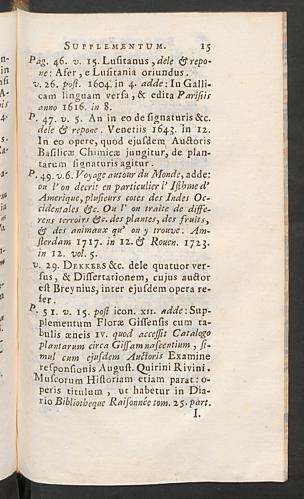 SUPPLEMENTUM. 15
Pag. 46. v. 15. Lusitanus, dele & repo-
ne: Afer, e Lusitania oriundus.
v. 26. post. 1604. in 4. adde: In Galli-
cam linguam versa, & edita Parisiis
anno 1616. in 8.
P. 47. v. 5. An in eo de signaturis &c.
dele & repone. Venetiis 1643. in 12.
In eo opere, quod ejusdem Auctoris
Basilicæ Chimicæ jungitur, de plan-
tarum signaturis agitur.
P. 49. v. 6. Voyage autour du Monde, adde:
ou l'on decrit en particulier l'Isthme d'
Amerique, plusieurs cotes des Indes Oc-
cidentales &c. Ou l'on traite de diffe-
rens terroirs &c. des plantes, des fruits,
& des animaux qu'on y trouve. Am-
sterdam 1717. in 12. & Rouen. 1723.
in 12. vol. 5.
v. 29. DEKKERS &c. dele quatuor ver-
sus, & Dissertationem, cujus auctor
est Breynius, inter ejusdem opera re-
fer.
P. 51. v. 15. post icon. XII. adde: Sup-
plementum Floræ Gissensis cum ta-
bulis æneis IV. quod accessit Catalogo
plantarum circa Gissam nascentium, si-
mul cum ejusdem Auctoris Examine
responsionis August. Quirini Rivini.
Muscorum Historiam etiam parat: o-
peris titulum, ut habetur in Dia-
rio Bibliotheque Raisonnée tom. 25. part.
I.